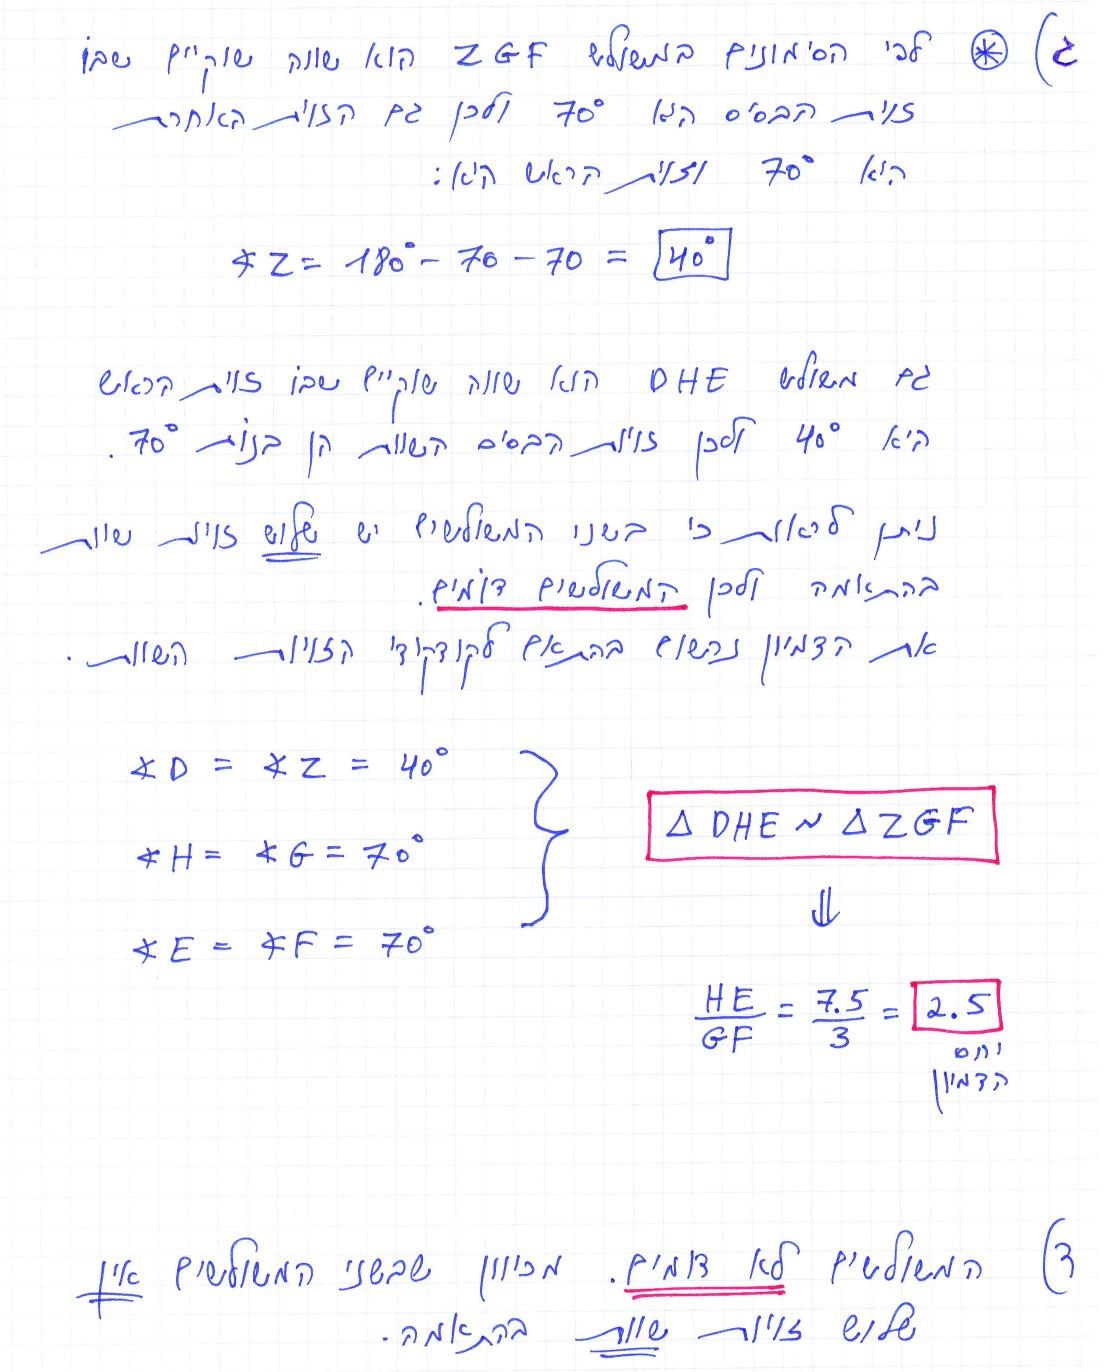 ג) * לפי הסימונים במשולש ZGF הוא שווה שוקיים שבו
זוית הבסיס היא 70° ולכן גם הזוית האחרת
היא 70° וזוית הראש היא:
∢Z = 180° - 70 - 70 = 40°
גם משולש DHE הוא שווה שוקיים שבו זוית הראש
היא 40° ולכן זויות הבסיס השוות הן בנות 70°.
ניתן לראות כי בשני המשולשים יש שלוש זויות שוות
בהתאמה ולכן המשולשים דומים.
את הדמיון נרשום בהתאם לקודקודי הזויות השוות.
∢D = ∢Z = 40°
∢H = ∢G = 70°
∢E = ∢F = 70°
△DHE ~ △ZGF
⇓
HE/GF = 7.5/3 = 2.5
יחס
הדמיון
ד) המשולשים לא דומים. מכיוון שבשני המשולשים אין
שלוש זויות שוות בהתאמה.